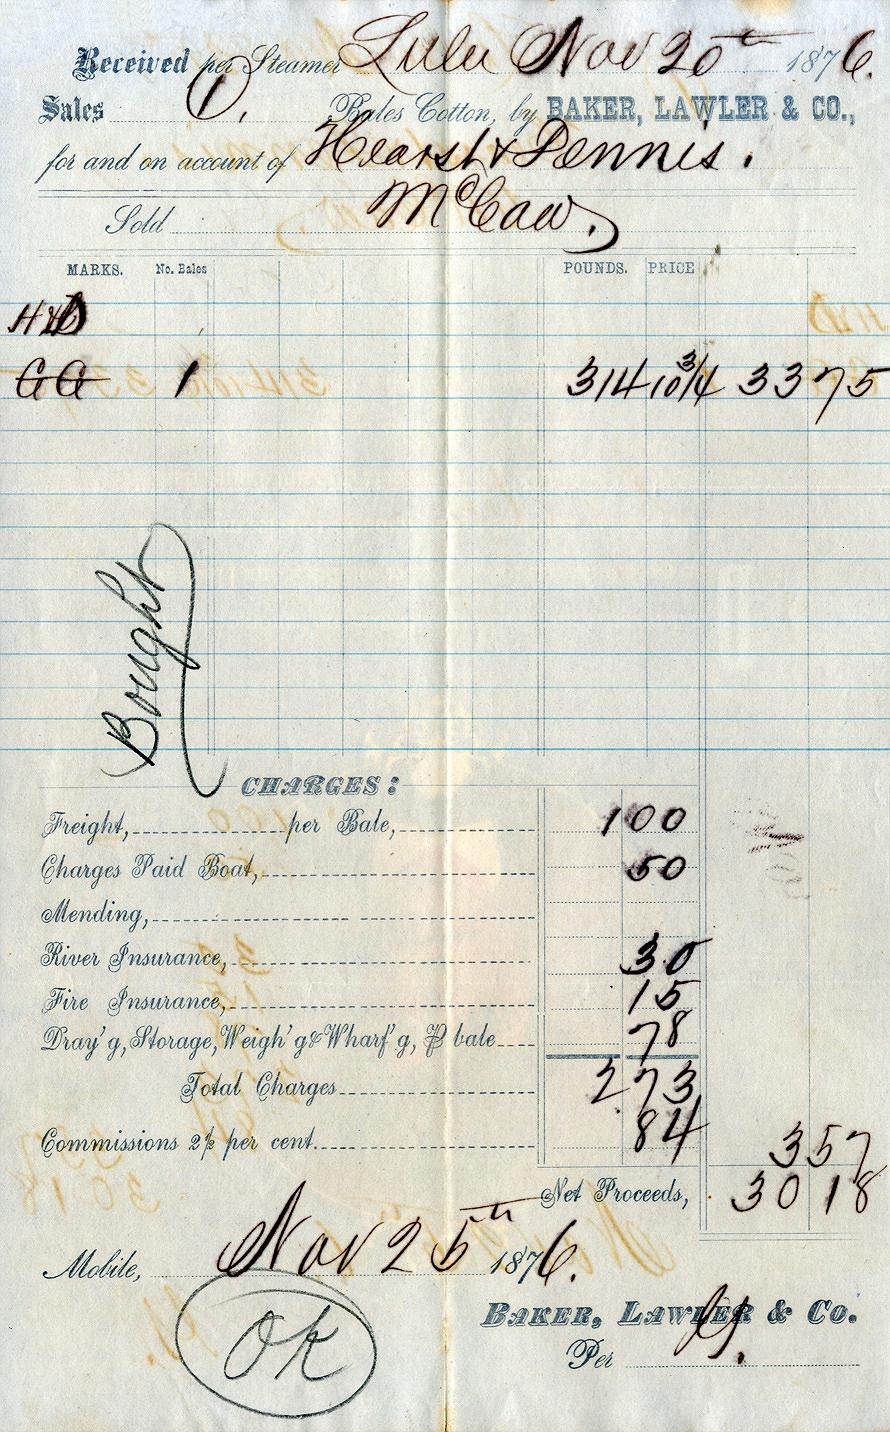 Received per Steamer Lulu Nov 20th 1876.
Sales 1, Bales Cotton, by BAKER, LAWLER & CO.,
for and on account of Hearst & Dennis.
Sold McCaw.
MARKS. No. Bales POUNDS. PRICE
H&D
GG 1 314 10 3/4 33 75
Bought
CHARGES:
Freight, per Bale, 1 00
Charges Paid Boat, 50
Mending,
River Insurance, 30
Fire Insurance, 15
Dray'g, Storage, Weigh'g & Wharf'g, ⅌ bale 78
Total Charges 2 73
Commissions 2½ per cent. 84 3 57
Net Proceeds, 30 18
Mobile, Nov 25th 1876.
OK
BAKER, LAWLER & Co.
Per